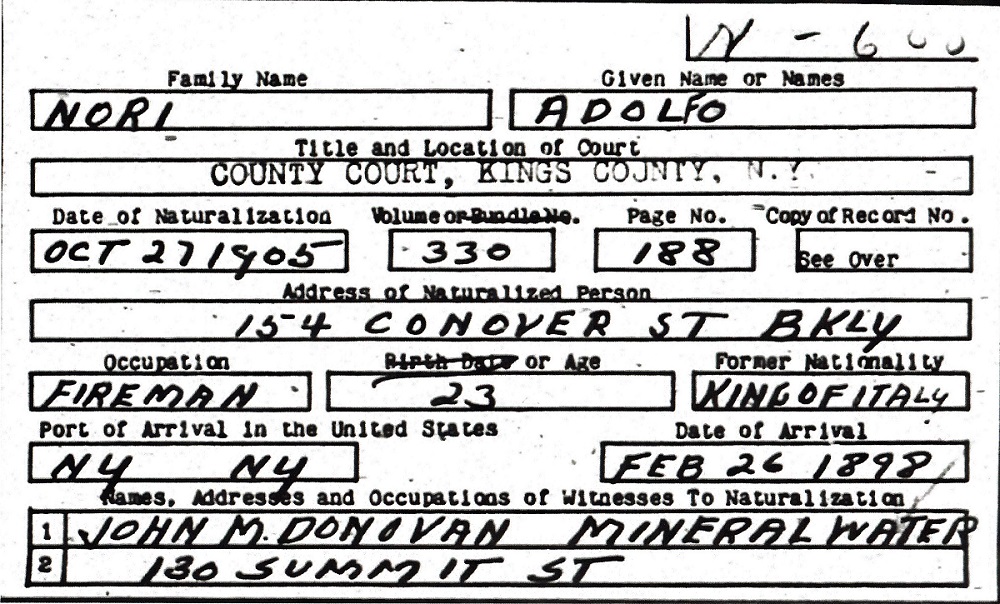 N - 600
Family Name Given Name or Names
NORI ADOLFO
Title and Location of Court
COUNTY COURT, KINGS COUNTY, N.Y.
Date of Naturalization Volume or Bundle No. Page No. Copy of Record No.
OCT 27 1905 330 188 See Over
Address of Naturalized Person
154 CONOVER ST BKLY
Occupation Birth Date or Age Former Nationality
FIREMAN 23 KING OF ITALY
Port of Arrival in the United States Date of Arrival
NY NY FEB 26 1898
Names, Addresses and Occupations of Witnesses To Naturalization
1 JOHN M. DONOVAN MINERAL WATER
2 130 SUMMIT ST